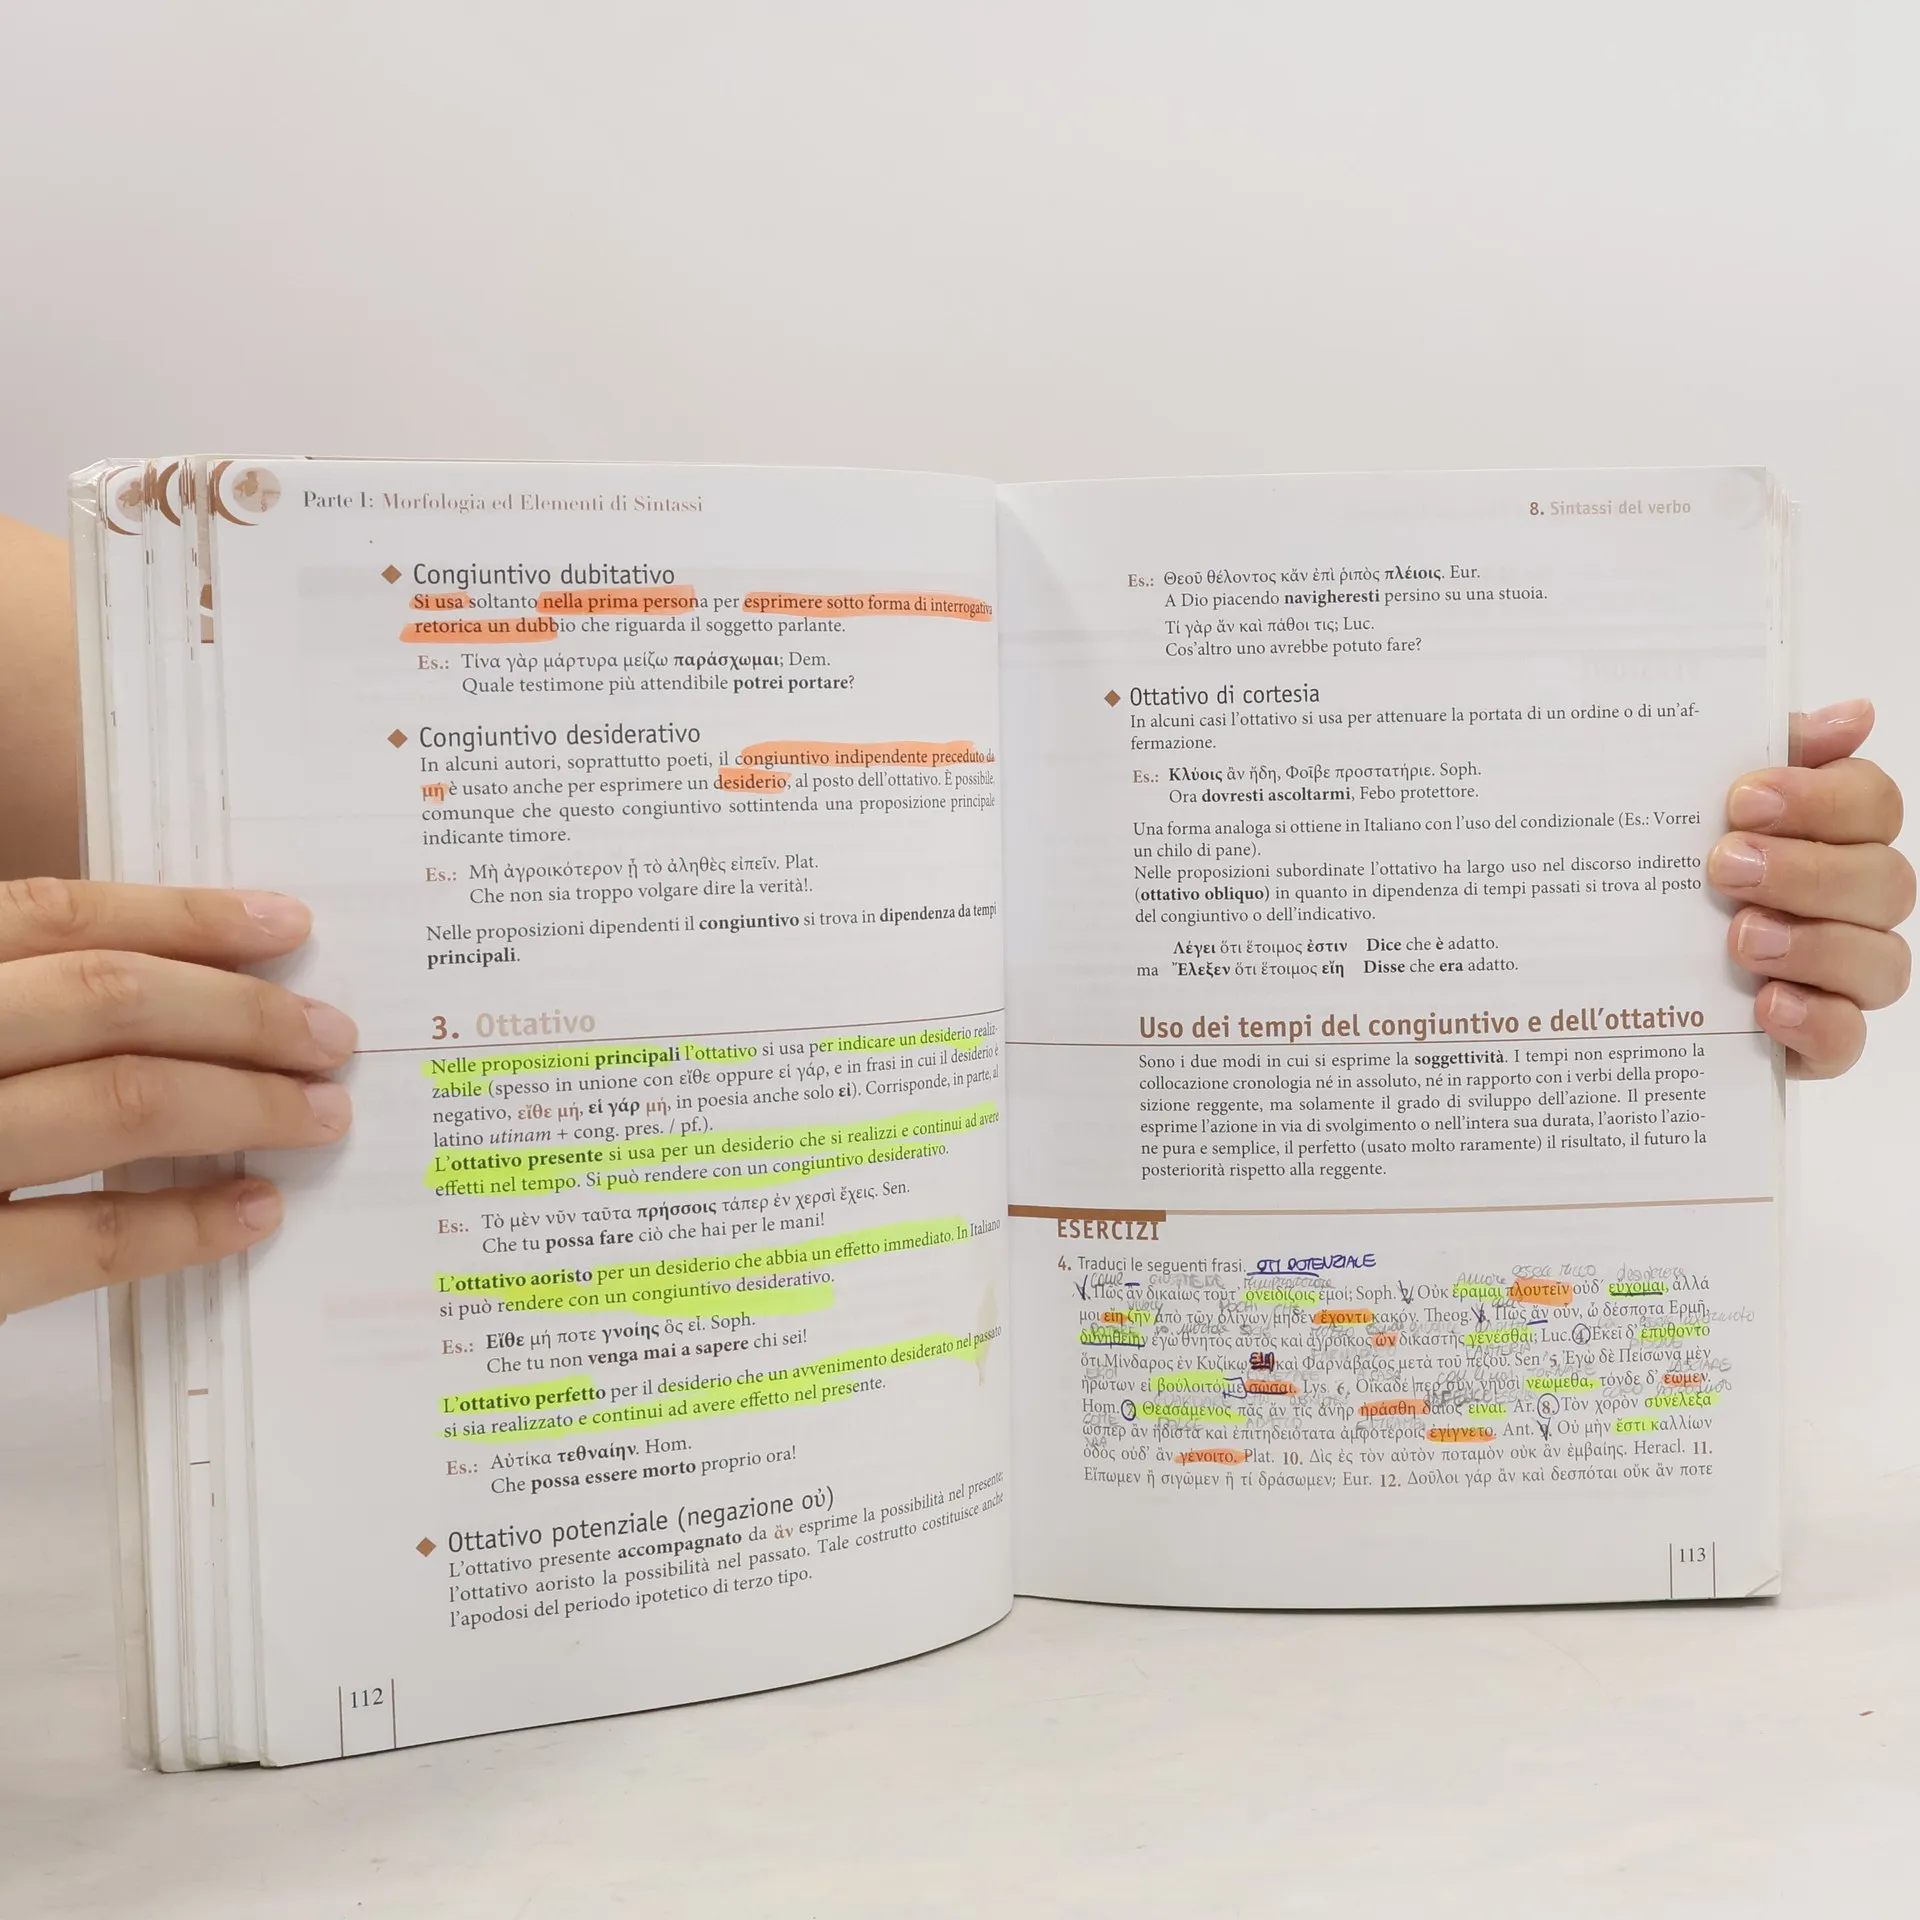 Parte I: Morfologia ed Elementi di Sintassi
Congiuntivo dubitativo
Si usa soltanto nella prima persona per esprimere sotto forma di interrogativa
retorica un dubbio che riguarda il soggetto parlante.
Es.: Τίνα γὰρ μάρτυρα μείζω παράσχωμαι; Dem.
Quale testimone più attendibile potrei portare?
Congiuntivo desiderativo
In alcuni autori, soprattutto poeti, il congiuntivo indipendente preceduto da
μή è usato anche per esprimere un desiderio, al posto dell'ottativo. È possibile,
comunque che questo congiuntivo sottintenda una proposizione principale
indicante timore.
Es.: Μὴ ἀγροικότερον ᾖ τὸ ἀληθὲς εἰπεῖν. Plat.
Che non sia troppo volgare dire la verità!.
Nelle proposizioni dipendenti il congiuntivo si trova in dipendenza da tempi
principali.
3. Ottativo
Nelle proposizioni principali l'ottativo si usa per indicare un desiderio realiz-
zabile (spesso in unione con εἴθε oppure εἰ γάρ, e in frasi in cui il desiderio è
negativo, εἴθε μή, εἰ γάρ μή, in poesia anche solo εἰ). Corrisponde, in parte, al
latino utinam + cong. pres. / pf.).
L'ottativo presente si usa per un desiderio che si realizzi e continui ad avere
effetti nel tempo. Si può rendere con un congiuntivo desiderativo.
Es:. Τὸ μὲν νῦν ταῦτα πρήσσοις τάπερ ἐν χερσὶ ἔχεις. Sen.
Che tu possa fare ciò che hai per le mani!
L'ottativo aoristo per un desiderio che abbia un effetto immediato. In Italiano
si può rendere con un congiuntivo desiderativo.
Es.: Εἴθε μή ποτε γνοίης ὃς εἶ. Soph.
Che tu non venga mai a sapere chi sei!
L'ottativo perfetto per il desiderio che un avvenimento desiderato nel passato
si sia realizzato e continui ad avere effetto nel presente.
Es.: Αὐτίκα τεθναίην. Hom.
Che possa essere morto proprio ora!
Ottativo potenziale (negazione οὐ)
L'ottativo presente accompagnato da ἄν esprime la possibilità nel presente;
l'ottativo aoristo la possibilità nel passato. Tale costrutto costituisce anche
l'apodosi del periodo ipotetico di terzo tipo.
112
8. Sintassi del verbo
Es.: Θεοῦ θέλοντος κἄν ἐπὶ ῥιπὸς πλέιοις. Eur.
A Dio piacendo navigheresti persino su una stuoia.
Τί γὰρ ἄν καὶ πάθοι τις; Luc.
Cos'altro uno avrebbe potuto fare?
Ottativo di cortesia
In alcuni casi l'ottativo si usa per attenuare la portata di un ordine o di un'af-
fermazione.
Es.: Κλύοις ἂν ἤδη, Φοῖβε προστατήριε. Soph.
Ora dovresti ascoltarmi, Febo protettore.
Una forma analoga si ottiene in Italiano con l'uso del condizionale (Es.: Vorrei
un chilo di pane).
Nelle proposizioni subordinate l'ottativo ha largo uso nel discorso indiretto
(ottativo obliquo) in quanto in dipendenza di tempi passati si trova al posto
del congiuntivo o dell'indicativo.
Λέγει ὅτι ἕτοιμος ἐστιν Dice che è adatto.
ma Ἔλεξεν ὅτι ἕτοιμος εἴη Disse che era adatto.
Uso dei tempi del congiuntivo e dell'ottativo
Sono i due modi in cui si esprime la soggettività. I tempi non esprimono la
collocazione cronologia né in assoluto, né in rapporto con i verbi della propo-
sizione reggente, ma solamente il grado di sviluppo dell'azione. Il presente
esprime l'azione in via di svolgimento o nell'intera sua durata, l'aoristo l'azio-
ne pura e semplice, il perfetto (usato molto raramente) il risultato, il futuro la
posteriorità rispetto alla reggente.
ESERCIZI
4. Traduci le seguenti frasi. OTT POTENZIALE
Πῶς ἂν δικαίως τοῦτ' ὀνειδίζοις ἐμοί; Soph. Οὐκ ἔραμαι πλουτεῖν οὐδ' εὔχομαι, ἀλλά
μοι εἴη ζῆν ἀπὸ τῶν ὀλίγων μηδὲν ἔχοντι κακόν. Theog. Πῶς ἂν οὖν, ὦ δέσποτα Ἑρμῆ,
δυνηθείην ἐγὼ θνητὸς αὐτὸς καὶ ἄγροικος ὢν δικαστὴς γενέσθαι; Luc. 4. Ἐκεῖ δ' ἐπύθοντο
ὅτι Μίνδαρος ἐν Κυζίκῳ εἴη καὶ Φαρνάβαζος μετὰ τοῦ πεζοῦ. Sen 5. Ἐγὼ δὲ Πείσωνα μὲν
ἠρώτων εἰ βούλοιτό με σῶσαι. Lys. 6. Οἴκαδέ περ σὺν νηυσὶ νεώμεθα, τόνδε δ' ἐῶμεν.
Hom. 7. Θεασάμενος πᾶς ἄν τις ἀνὴρ ἠράσθη δάϊος εἶναι. Ar. 8. Τὸν χορὸν συνέλεξα
ὥσπερ ἂν ἥδιστα καὶ ἐπιτηδειότατα ἀμφοτέροις ἐγίγνετο. Ant. Οὐ μὴν ἔστι καλλίων
ὁδὸς οὐδ' ἂν γένοιτο. Plat. 10. Δὶς ἐς τὸν αὐτὸν ποταμὸν οὐκ ἂν ἐμβαίης. Heracl. 11.
Εἴπωμεν ἢ σιγῶμεν ἢ τί δράσωμεν; Eur. 12. Δοῦλοι γάρ ἂν καὶ δεσπόται οὔκ ἄν ποτε
113